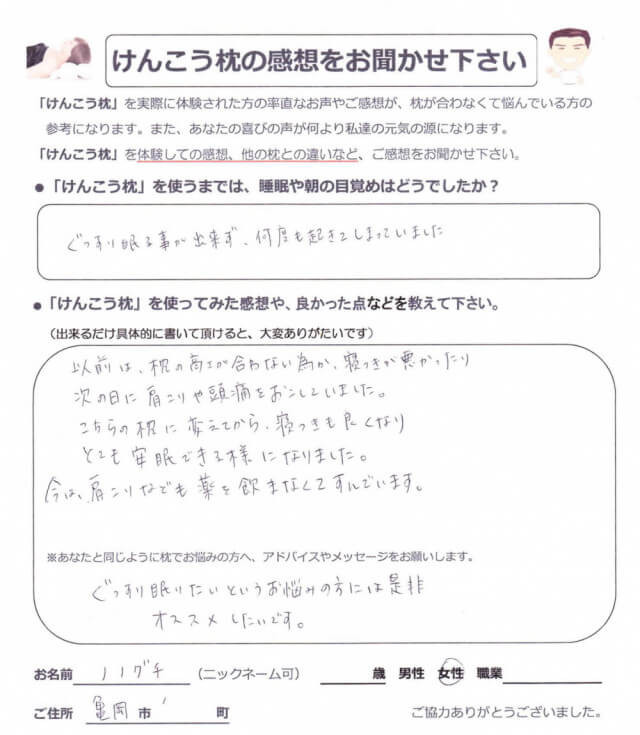 けんこう枕の感想をお聞かせ下さい
「けんこう枕」を実際に体験された方の率直なお声やご感想が、枕が合わなくて悩んでいる方の
参考になります。また、あなたの喜びの声が何より私達の元気の源になります。
「けんこう枕」を体験しての感想、他の枕との違いなど、ご感想をお聞かせ下さい。
●「けんこう枕」を使うまでは、睡眠や朝の目覚めはどうでしたか？
ぐっすり眠る事が出来ず、何度も起きてしまっていました
●「けんこう枕」を使ってみた感想や、良かった点などを教えて下さい。
（出来るだけ具体的に書いて頂けると、大変ありがたいです）
以前は、枕の高さが合わない為か、寝つきが悪かったり
次の日に肩こりや頭痛をおこしていました。
こちらの枕に変えてから、寝つきも良くなり
とても安眠できる様になりました。
今は、肩こりなども薬を飲まなくてすんでいます。
※あなたと同じように枕でお悩みの方へ、アドバイスやメッセージをお願いします。
ぐっすり眠りたいというお悩みの方には是非
オススメしたいです。
お名前 ノノグチ （ニックネーム可） 歳 男性 女性 職業
ご住所 亀岡 市 町 ご協力ありがとうございました。